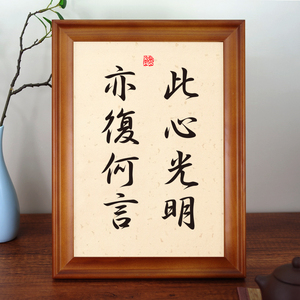 此心光明
亦復何言